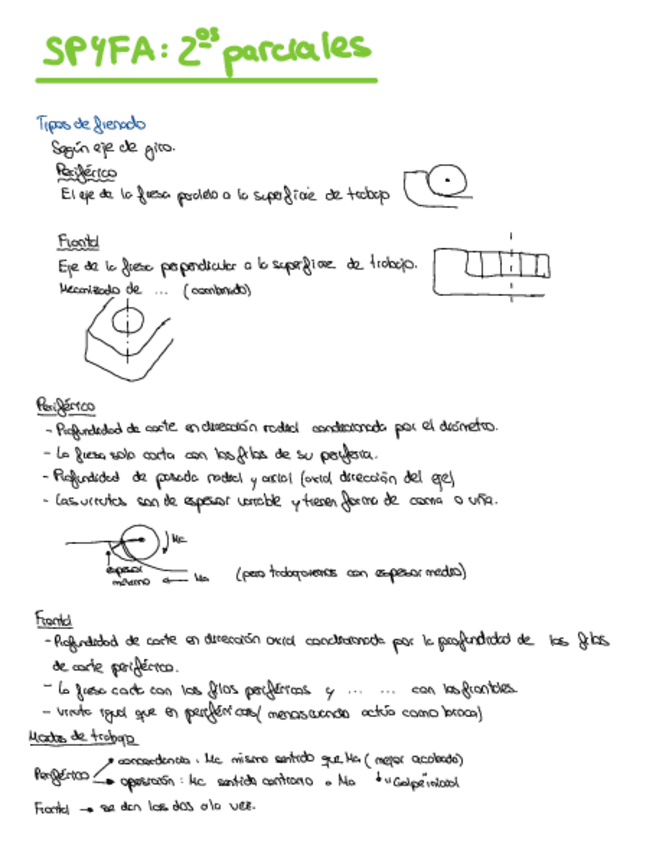 SPYFA: 2ºˢ parciales
Tipos de frenado
Según eje de giro.
Periférico
El eje de la fresa paralelo a la superficie de trabajo
Frontal
Eje de la fresa perpendicular a la superficie de trabajo.
Mecanizado de ... (combinado)
Periférico
- Profundidad de corte en dirección radial condicionada por el diámetro.
- La fresa solo corta con los filos de su periferia.
- Profundidad de pasada radial y axial (axial dirección del eje)
- Las virutas son de espesor variable y tienen forma de coma o uña.
Mc
espesor
máximo
Ma
(pero trabajaremos con espesor medio)
Frontal
- Profundidad de corte en dirección axial condicionada por la profundidad de los filos
de corte periférico.
- La fresa corta con los filos periféricos y ... ... con los frontales
- viruta igual que en periféricos (menos cuando actúa como broca)
Modos de trabajo
Periférico → concordancia: Mc mismo sentido que Ma (mejor acabado)
→ oposición: Mc sentido contrario a Ma ↓ "Golpe" inicial
Frontal → se dan los dos a la vez.